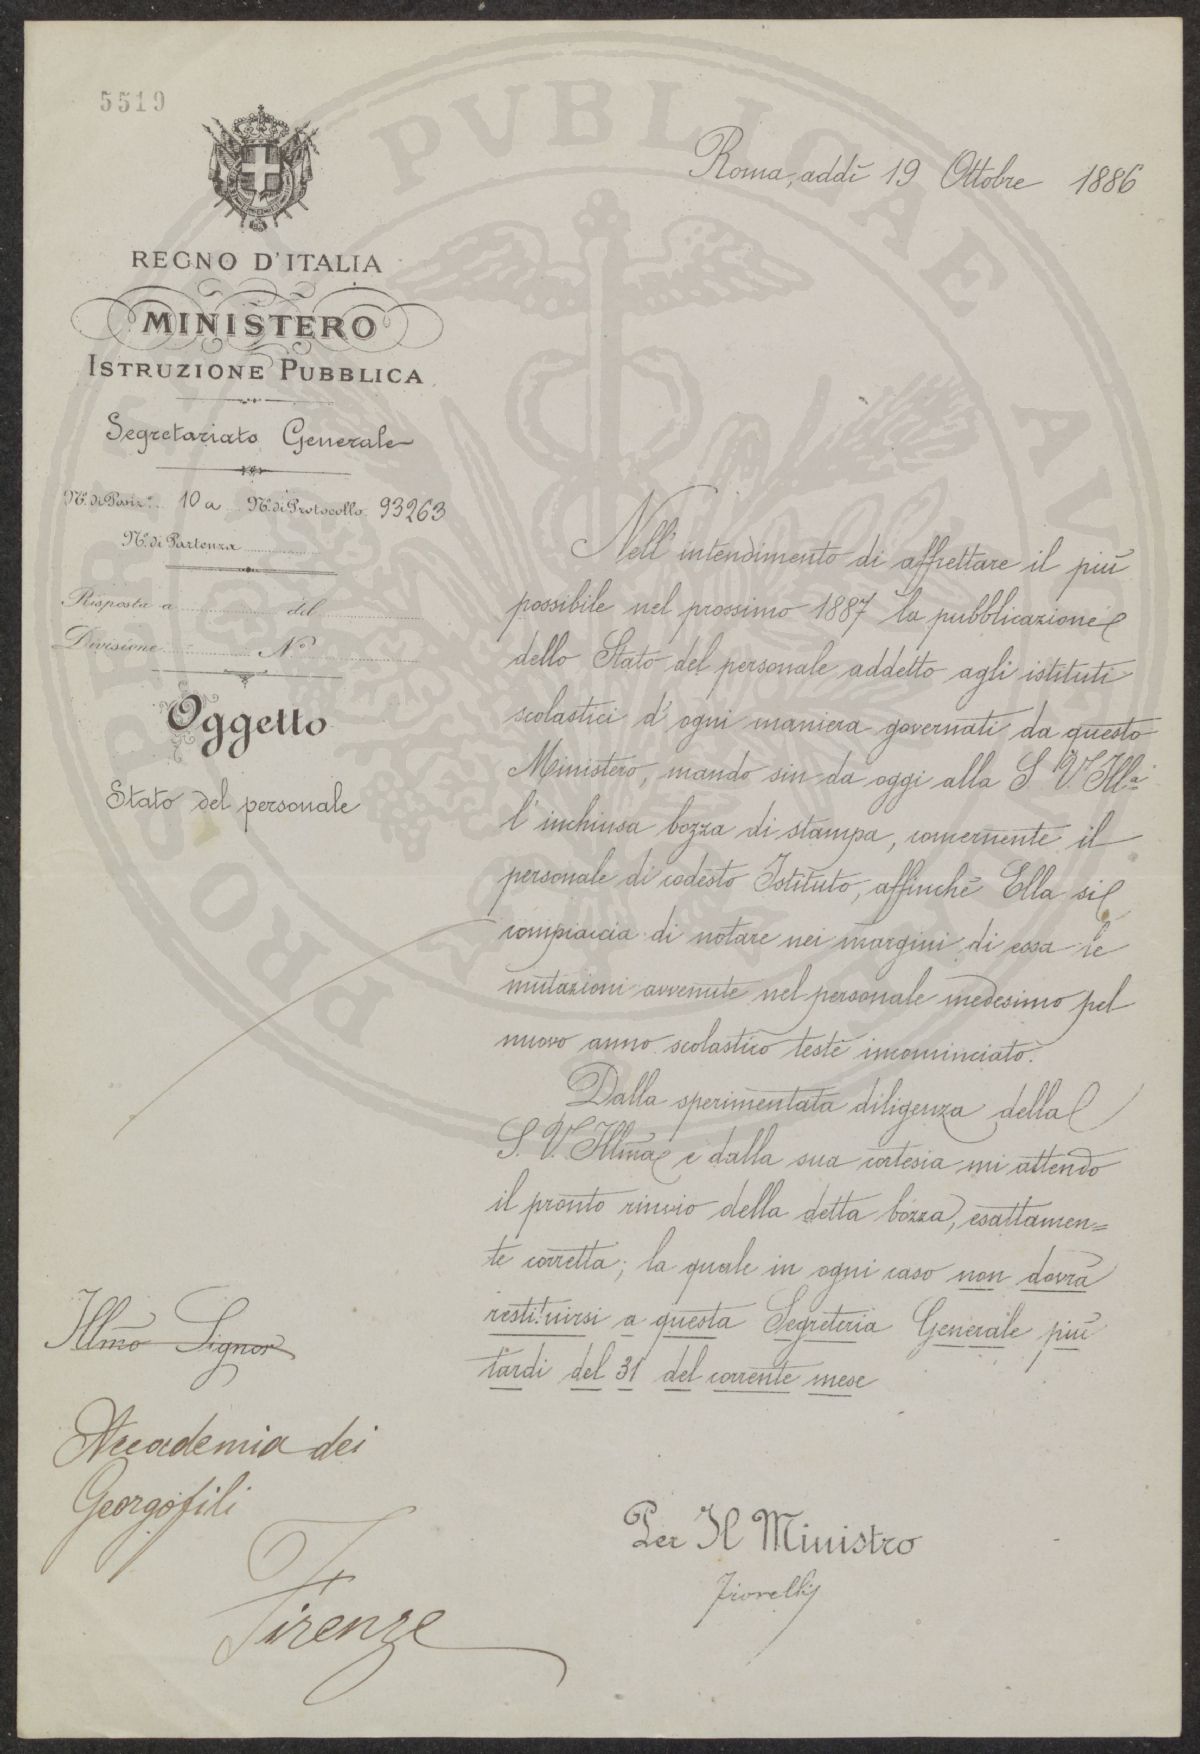 5519
Roma, addì 19 Ottobre 1886
REGNO D'ITALIA
MINISTERO
ISTRUZIONE PUBBLICA
Segretariato Generale
N.° di Posiz.e 10a N.° di Protocollo 93263
N.° di Partenza
Risposta a del
Divisione N.°
Oggetto
Stato del personale
Nell'intendimento di affrettare il più
possibile nel prossimo 1887 la pubblicazione
dello Stato del personale addetto agli istituti
scolastici d'ogni maniera governati da questo
Ministero, mando sin da oggi alla S. V. Illa.
l'inchiusa bozza di stampa, concernente il
personale di codesto Istituto, affinchè Ella si
compiaccia di notare nei margini di essa le
mutazioni avvenute nel personale medesimo pel
nuovo anno scolastico testè incominciato.
Dalla sperimentata diligenza della
S. V. Illma e dalla sua cortesia mi attendo
il pronto rinvio della detta bozza, esattamen=
te corretta; la quale in ogni caso non dovrà
restituirsi a questa Segreteria Generale più
tardi del 31 del corrente mese
Illmo Signor
Accademia dei
Georgofili
Firenze
Per Il Ministro
Fiorelli
PUBLICAE
PRO